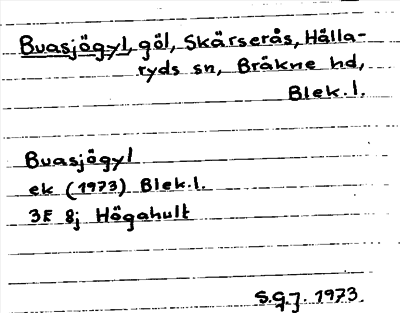 Buasjögyl, göl, Skärserås, Hälla-
ryds sn, Bräkne hd,
Blek.l.
Buasjögyl
ek (1973) Blek.l.
3F 8j Högahult
S.G.J. 1973.